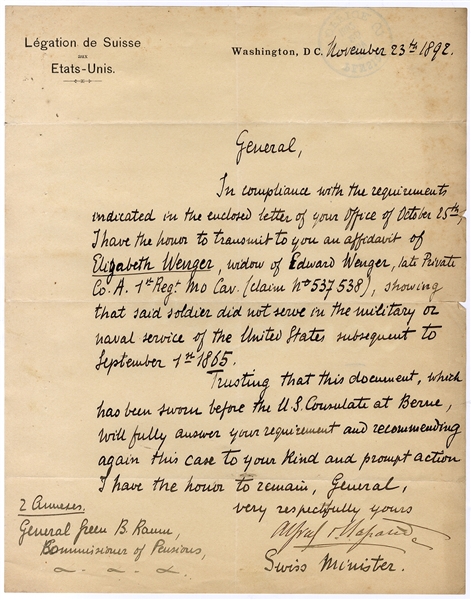 Légation de Suisse
aux
Etats-Unis.
Washington, D C. November 23th 1892.
General,
In compliance with the requirements
indicated in the enclosed letter of your Office of October 25th,
I have the honor to transmit to you an affidavit of
Elizabeth Wenger, widow of Edward Wenger, late Private
Co. A. 1st Regt. Mo Cav. (claim No 537538), showing
that said soldier did not serve in the military or
naval service of the United States subsequent to
September 1st 1865.
Trusting that this document, which
has been sworn before the U.S. Consulate at Berne,
will fully answer your requirement and recommending
again this case to your kind and prompt action
I have the honor to remain, General,
very respectfully yours
Alfred
Swiss Minister.
2 Annexes.
General Green B. Raum,
Commissioner of Pensions,